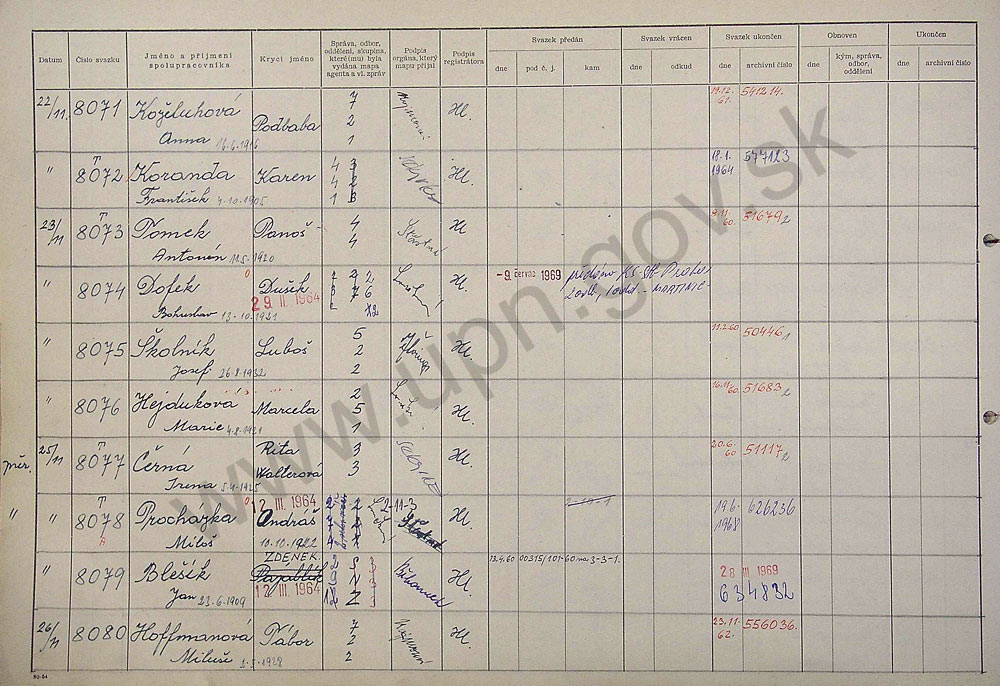 Datum
Číslo svazku
Jméno a příjmení
spolupracovníka
Krycí jméno
Správa, odbor,
oddělení, skupina,
které(mu) byla
vydána mapa
agenta a vl. zpráv
Podpis
orgána, který
mapu přijal
Podpis
registrátora
Svazek předán
dne
pod č. j.
kam
Svazek vrácen
dne
odkud
Svazek ukončen
dne
archivní číslo
Obnoven
dne
kým, správa,
odbor,
oddělení
Ukončen
dne
archivní číslo
22/11.
8071
Koželuhová
Anna 16.6.1915
Podbaba
7
2
1
Hl.
19.12.
61.
541214.
"
T
8072
Koranda
František 4.10.1905
Karen
4 3
4 2
1 3
Hl.
18.1.
1964
577123
23/11
T
8073
Tomek
Antonín 11.5.1920
Panoš
4
4
Šťastná
Hl
9.11.
60.
51679/2
"
8074
Dofek
Bohuslav 13.10.1921
Dušek
29 II 1964
Hl
-9. červac 1969
předáno KS-SNB Praha
2 odb, 1 odd - MARTINIC
"
8075
Školník
Josef 26.8.1932
Luboš
5
2
2
Hl
11.2.60
50446/1
"
8076
Hejduková
Marie 4.8.1921
Marcela
2
5
1
Hl.
16.11.
60.
51683/2
pěr.
25/11
T
8077
Černá
Irena 5.4.1925
Rita
Walterová
3
3
Hl.
20.6.
60
51117/2
"
"
T
8078
Procházka
Miloš 10.10.1922
12 III. 1964
Ondráš
2-11-3
Šťastná
Hl.
2-10.1
19.6.
1968
626236
"
8079
Blešík
Jan 23.6.1909
ZDENEK.
12 III. 1964
2 S 3
9 N 3
12 Z 3
Hl
13.4.60
00315/101-60
na 3-3-1.
28 III 1969
634832
26/11
8080
Hoffmanová
Miluše 1.5.1928
Tábor
7
2
2
Hl
23.11.
62.
556036.
SG-54
www.upn.gov.sk